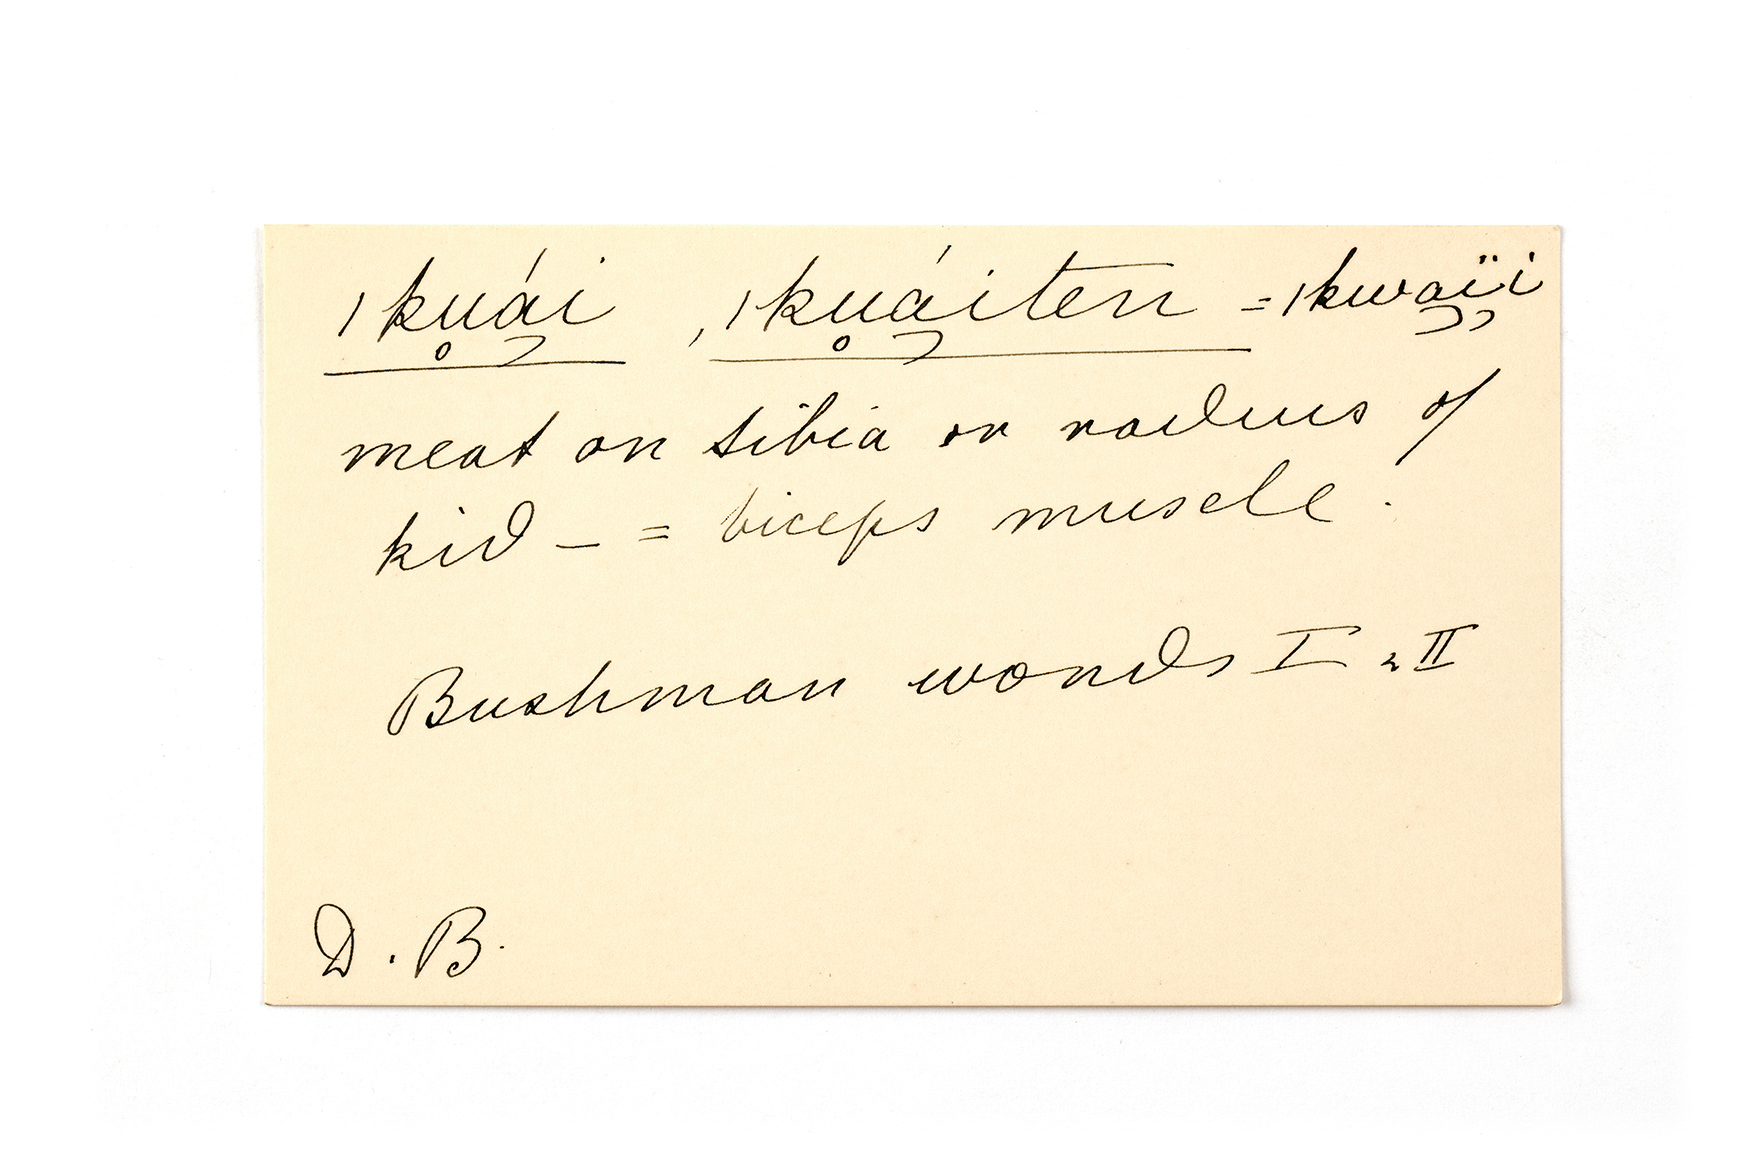 ǀku̥ái , ǀku̥áiten = ǀkwaïi
meat on tibia or radius of
kid – = biceps muscle.
Bushman words I & II
D. B.